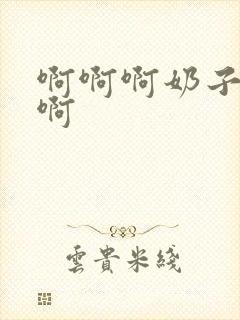 啊啊啊奶子
啊
雲貴米綫